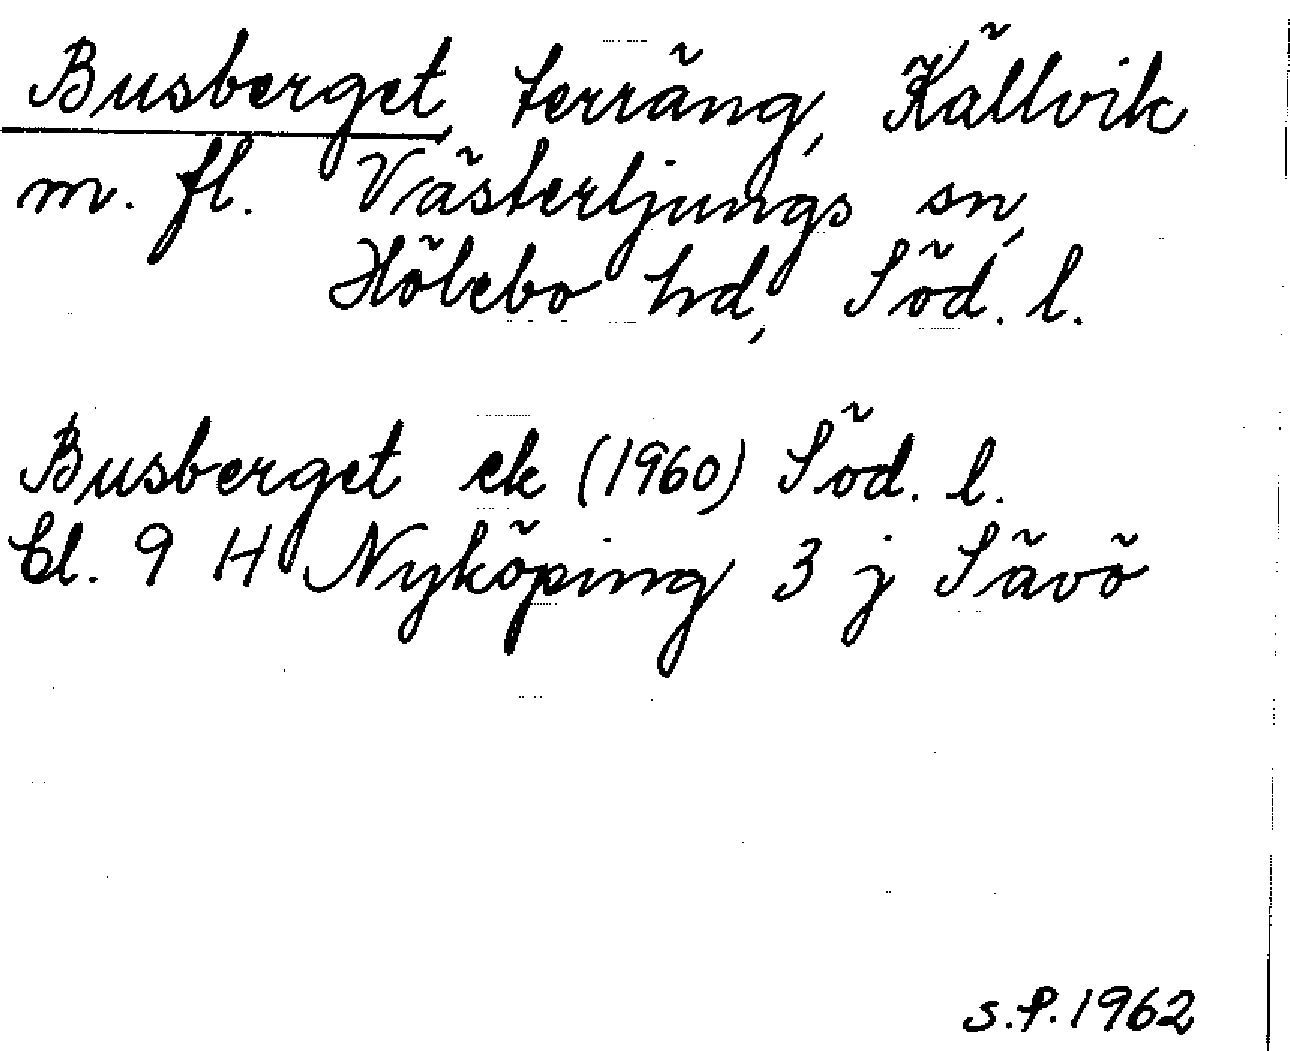 Busberget, terräng, Källvik
m. fl. Västerljungs sn,
Hölebo hd, Söd. l.
Busberget ek (1960) Söd. l.
bl. 9 H Nyköping 3 j Sävö
s.P. 1962